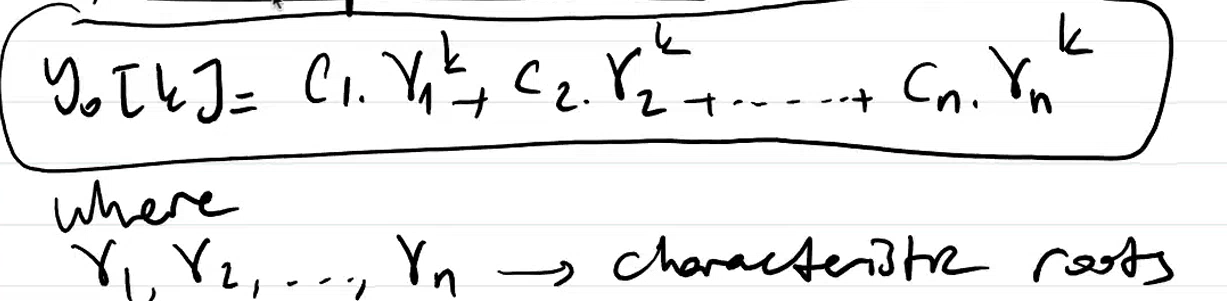 y₀[k] = C₁.γ₁ᵏ + C₂.γ₂ᵏ + ...... + Cₙ.γₙᵏ
where
γ₁, γ₂, ..., γₙ → characteristic roots